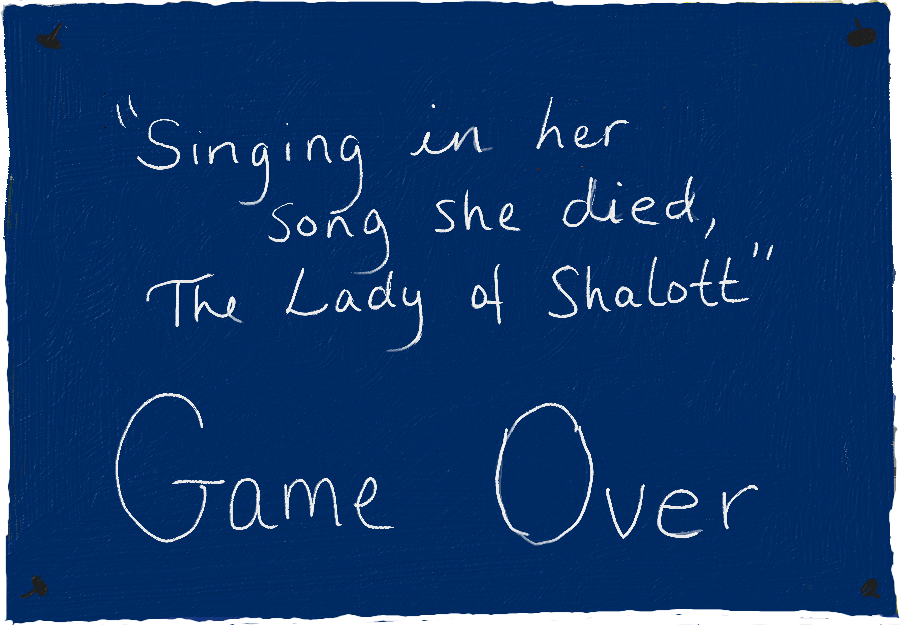 "Singing in her
song she died,
The Lady of Shalott"
Game Over